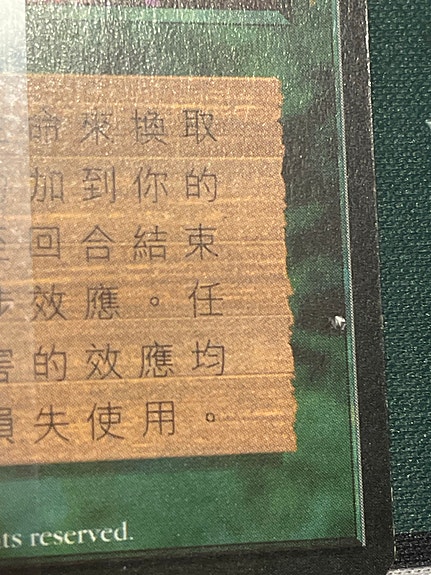 命來換取
加到你的
回合結束
效應。任
的效應均
損失使用。
ts reserved.